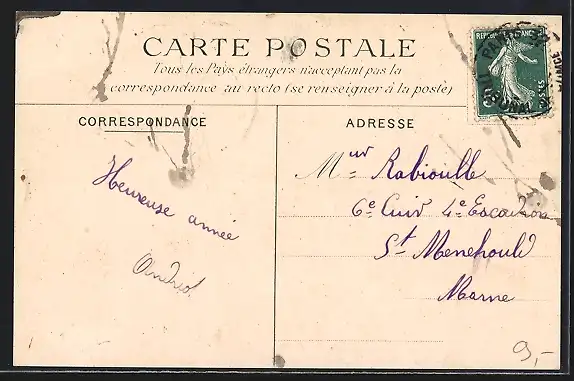 CARTE POSTALE
Tous les Pays étrangers n'acceptant pas la
correspondance au recto (se renseigner à la poste)
CORRESPONDANCE
ADRESSE
Heureuse année
Mʳ Rabioulle
6ᵉ Cuir 4ᵉ Escadron
Sᵗ Menehould
Marne
9,-